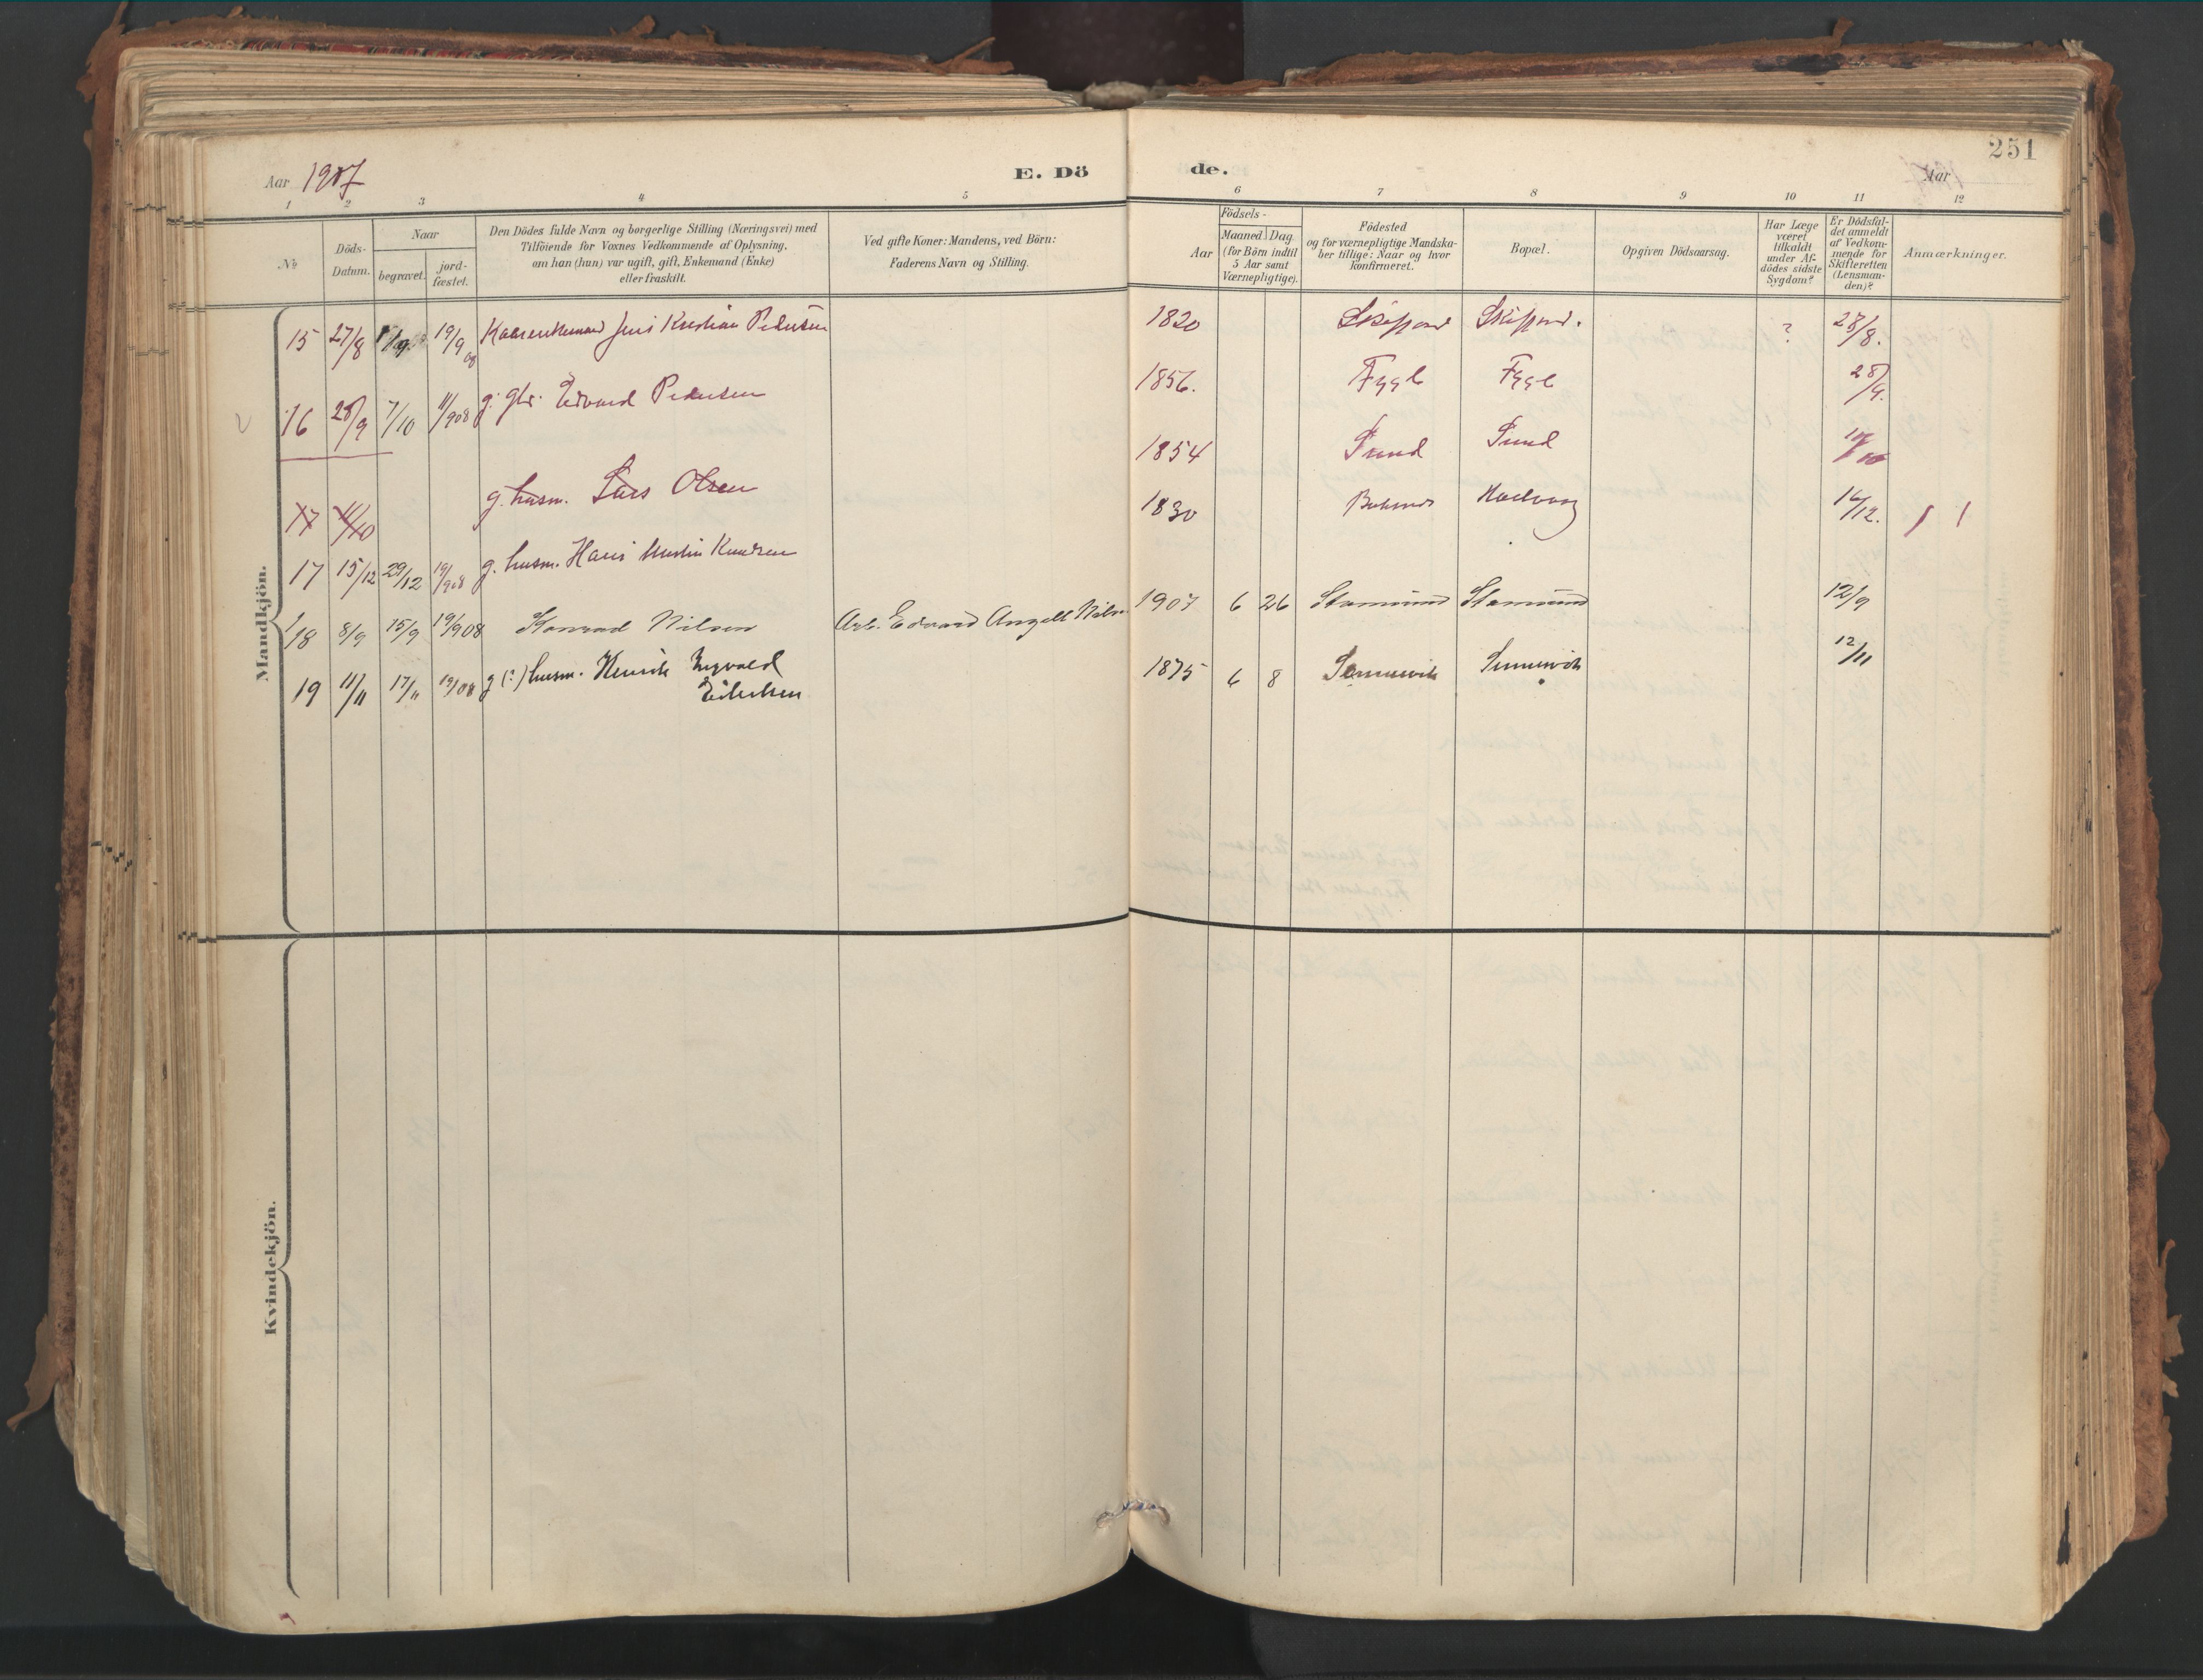 251
Aar 1907 E. Dö de. Aar
1 2 3 4 5 6 7 8 9 10 11 12
№
Döds-Datum.
Naar
begravet. jord-fæstet.
Den Dödes fulde Navn og borgerlige Stilling (Næringsvei) med
Tilföiende for Voxnes Vedkommende af Oplysning,
om han (hun) var ugift, gift, Enkemand (Enke)
eller fraskilt.
Ved gifte Koner: Mandens, ved Börn:
Faderens Navn og Stilling.
Födsels-
Aar Maaned. Dag.
(for Börn indtil
5 Aar samt
Værnepligtige).
Födested
og for værnepligtige Mandska-
ber tillige: Naar og hvor
konfirmeret.
Bopæl.
Opgiven Dödsaarsag.
Har Læge
været
tilkaldt
under Af-
dödes sidste
Sygdom?
Er Dödsfal-
det anmeldt
af Vedkom-
mende for
Skifteretten
(Lensman-
den)?
Anmærkninger.
Mandkjön.
15 27/8 19/9 08 Kaarenkemand Jens Kristian Pedersen 1820 ? 28/8.
16 28/9 7/10 11/908 g. gbr. Edvard Pedersen 1856. Fygle Fygle 28/9.
17 11/10 g. husm. Lars Olsen 1854 Sund Sund
17 15/12 29/12 19/908 g. husm. Hans Martin Knudsen 1830 16/12.
18 8/9 15/9 19/908 Konrad Nilsen Arb. Edvard Angell Nilsen 1907 6 26 Stamsund Stamsund 12/9
19 11/11 17/11 19/08 g (?) husm. Henrik Ingvald 1875 6 8 12/11
Eilertsen
Kvindekjön.